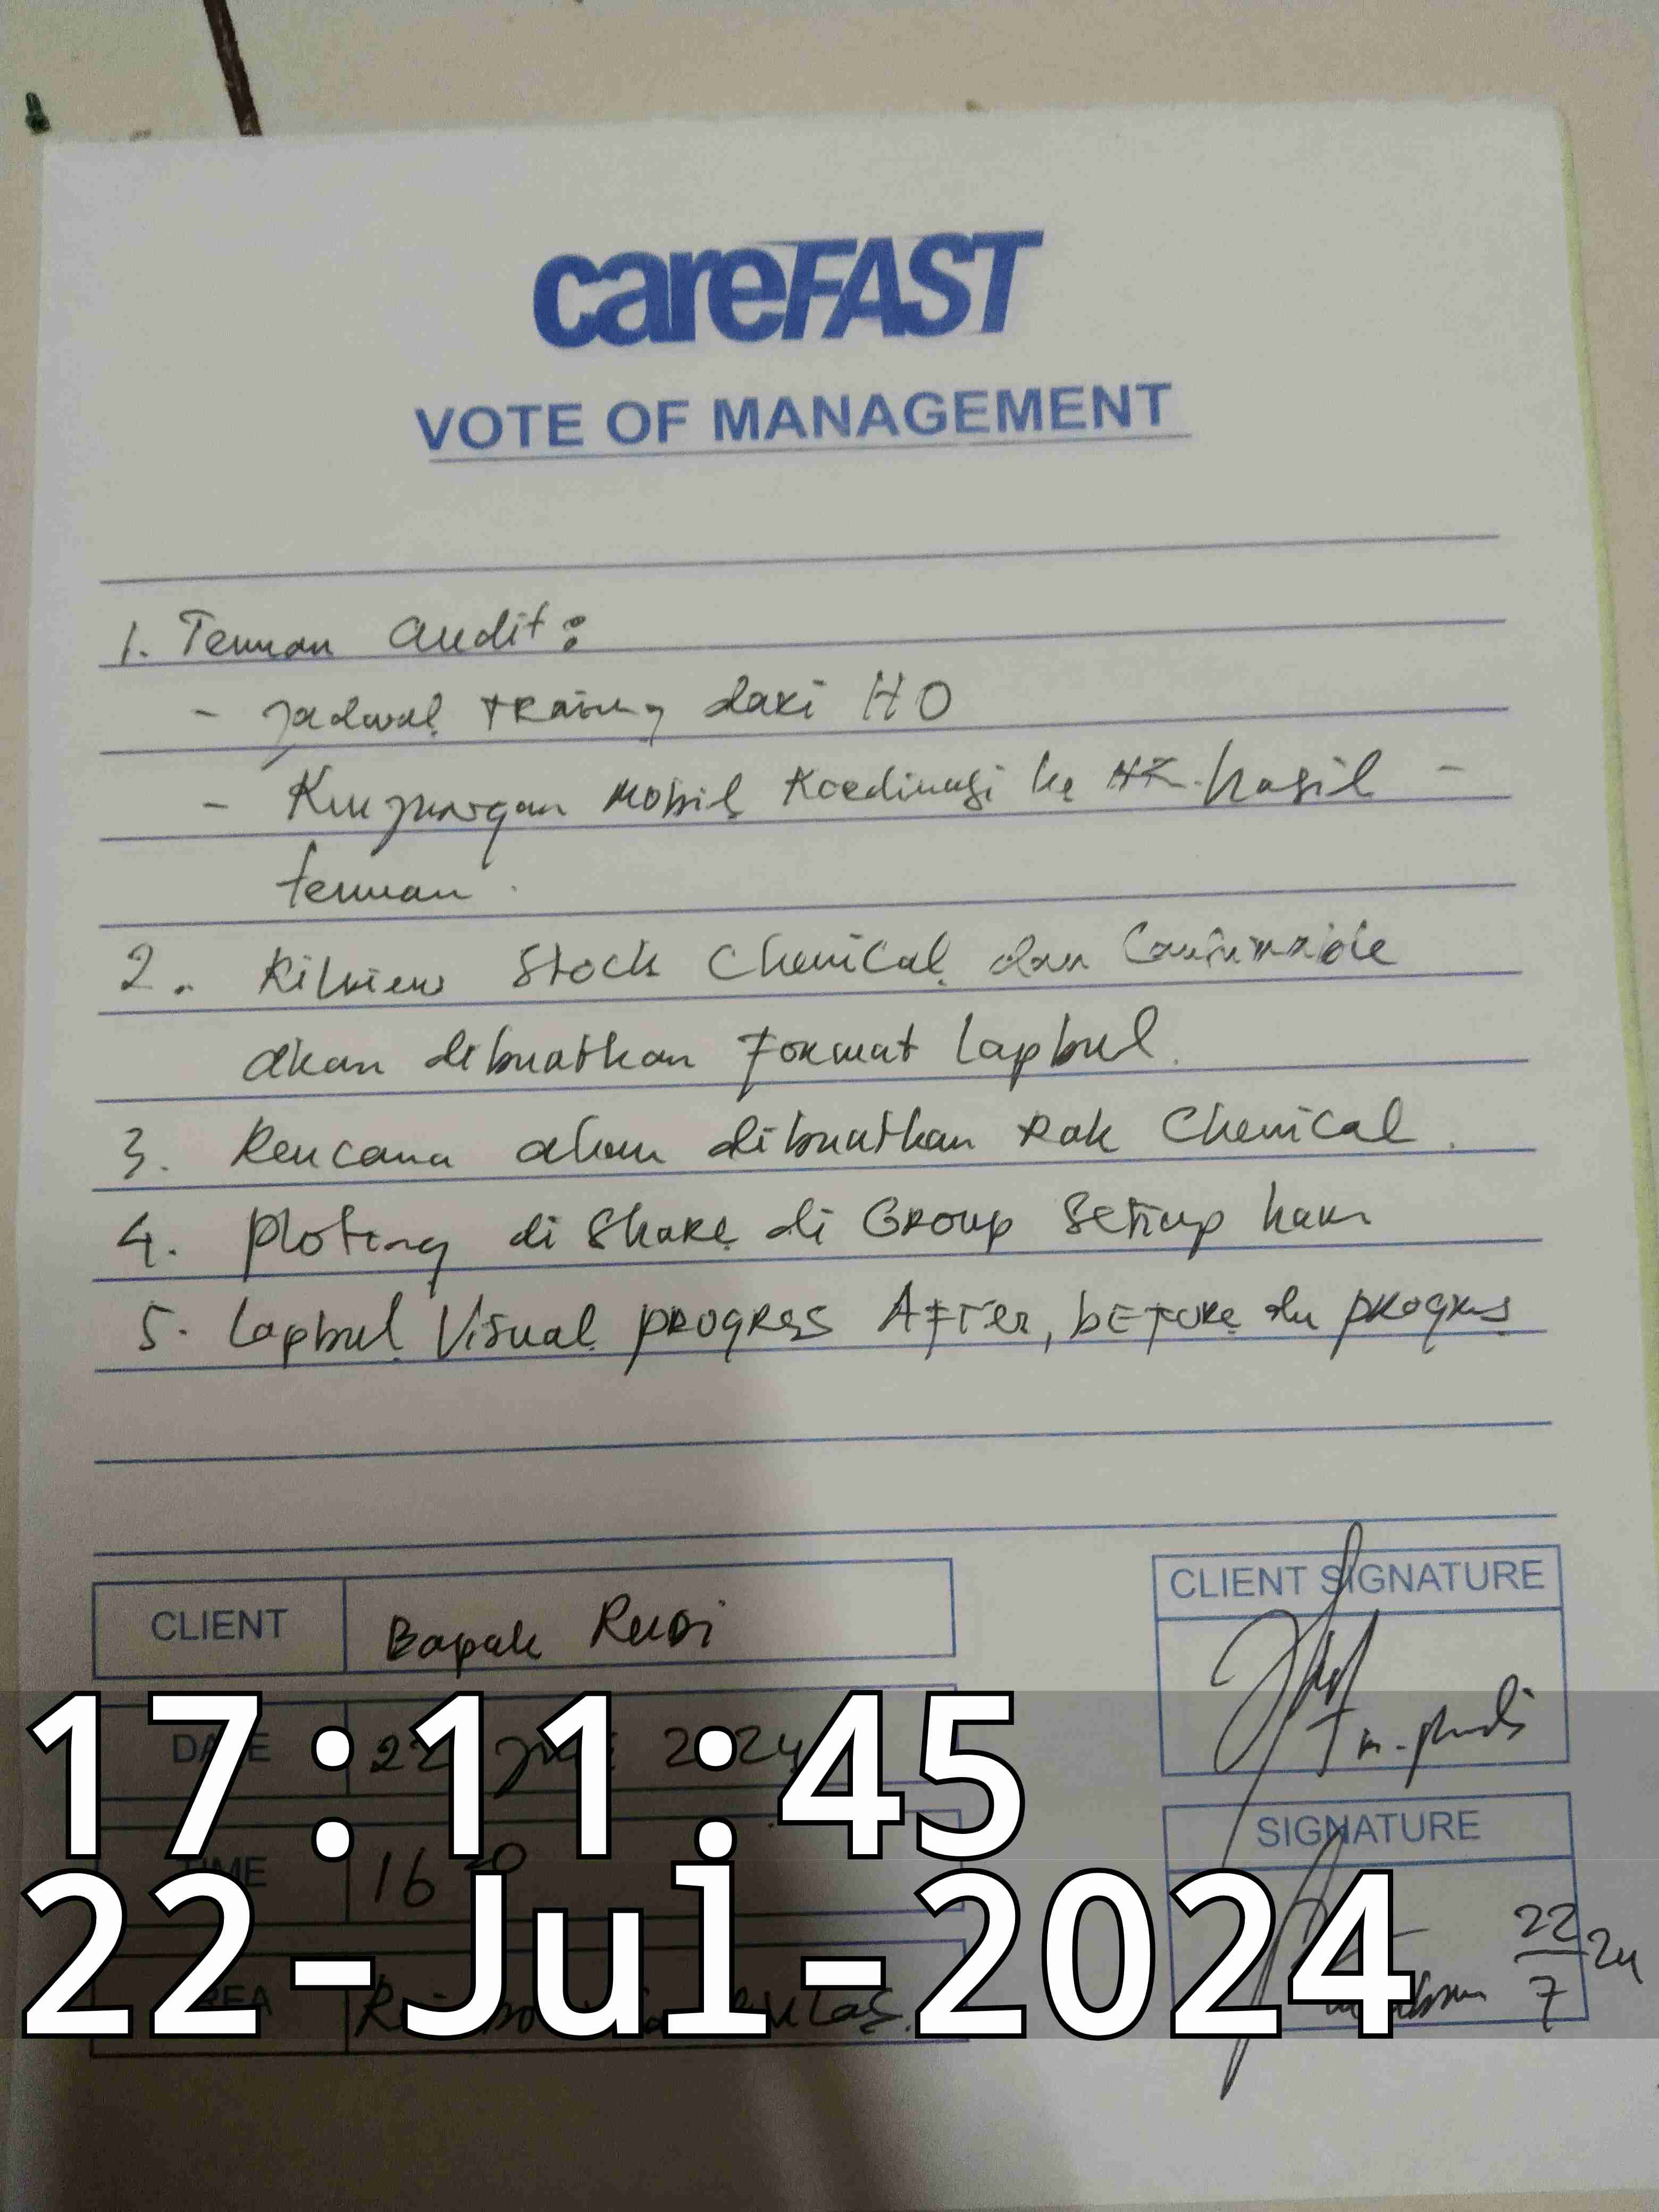 careFAST
VOTE OF MANAGEMENT
1. Temuan Audit :
- Jadwal training dari HO
- Kunjungan Mobil Koordinasi ke HK. hasil -
temuan.
2. Riview Stock Chemical dan
akan dibuatkan Format Lapbul.
3. Rencana akan dibuatkan Rak Chemical.
4. Ploting di Share di Group Setiap hari
5. Lapbul Visual progress After, before dn progres
CLIENT Bapak Rudi
CLIENT SIGNATURE
DATE 22 2024
TIME 16
SIGNATURE
22/7 24
17:11:45
22-Jul-2024